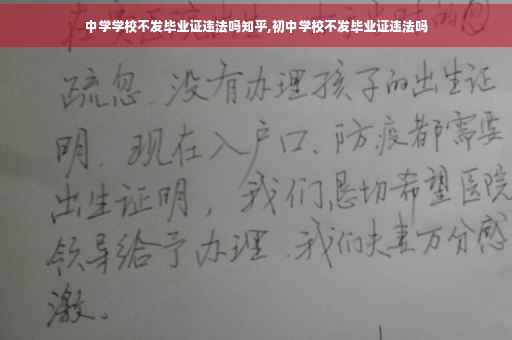 中学学校不发毕业证违法吗知乎,初中学校不发毕业证违法吗
疏忽、没有办理孩子的出生证
明、现在入户口、防疫都需要
出生证明，我们恳切希望医院
领导给予办理、我们夫妻万分感
激。